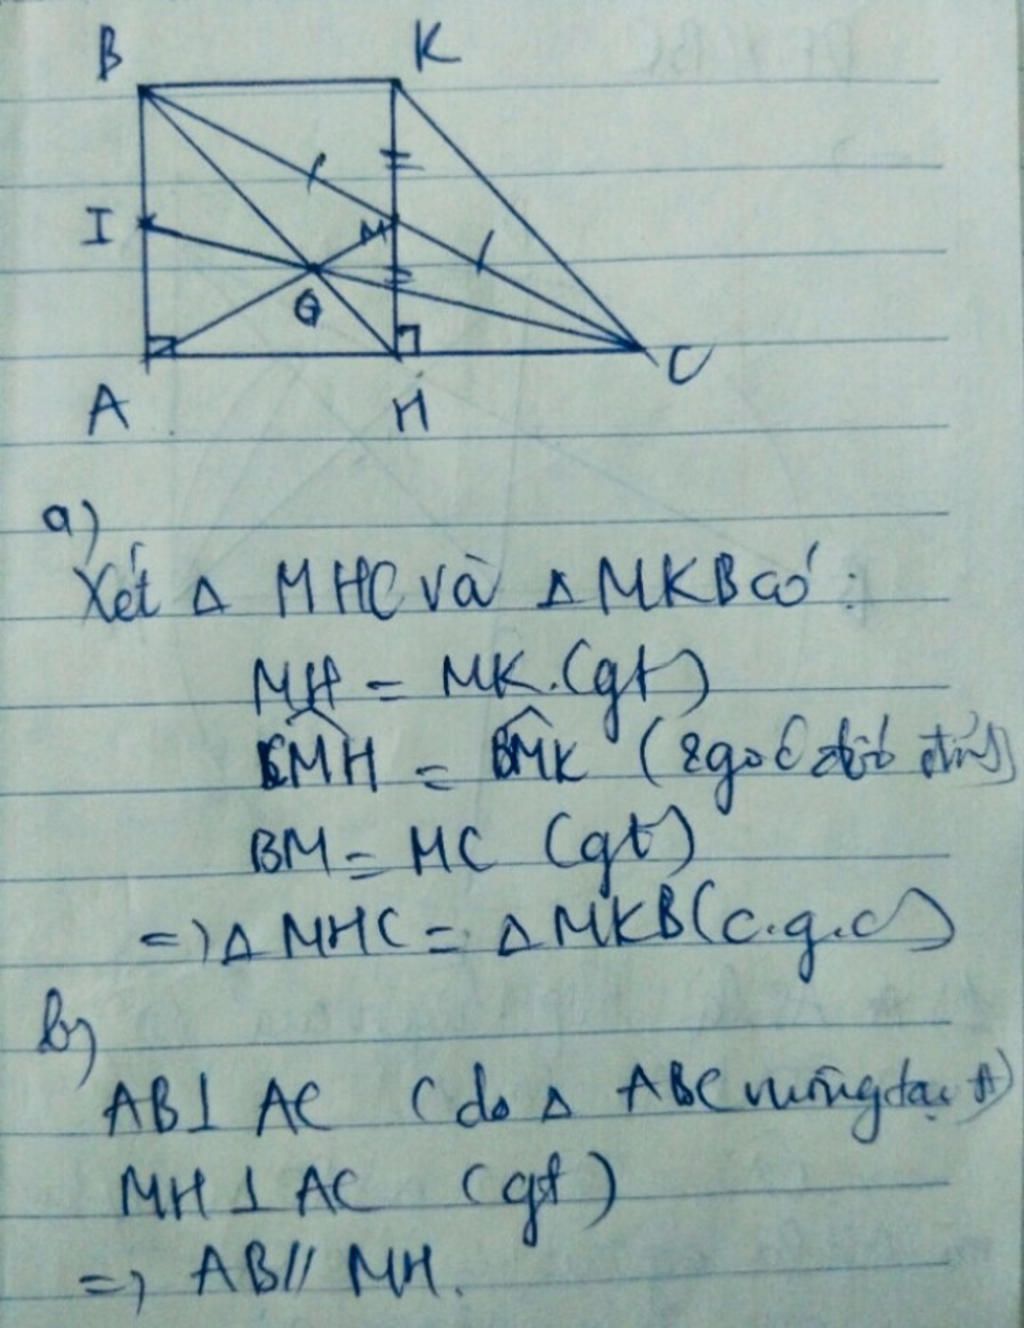 B K
I M
G
A H C
a)
Xét Δ MHC và Δ MKB có :
MH = MK. (gt)
CMH = BMK (2 góc đối đỉnh)
BM = MC (gt)
=> Δ MHC = Δ MKB (c.g.c)
b)
AB ⊥ AC (do Δ ABC vuông tại A)
MH ⊥ AC (gt)
=> AB // MH.